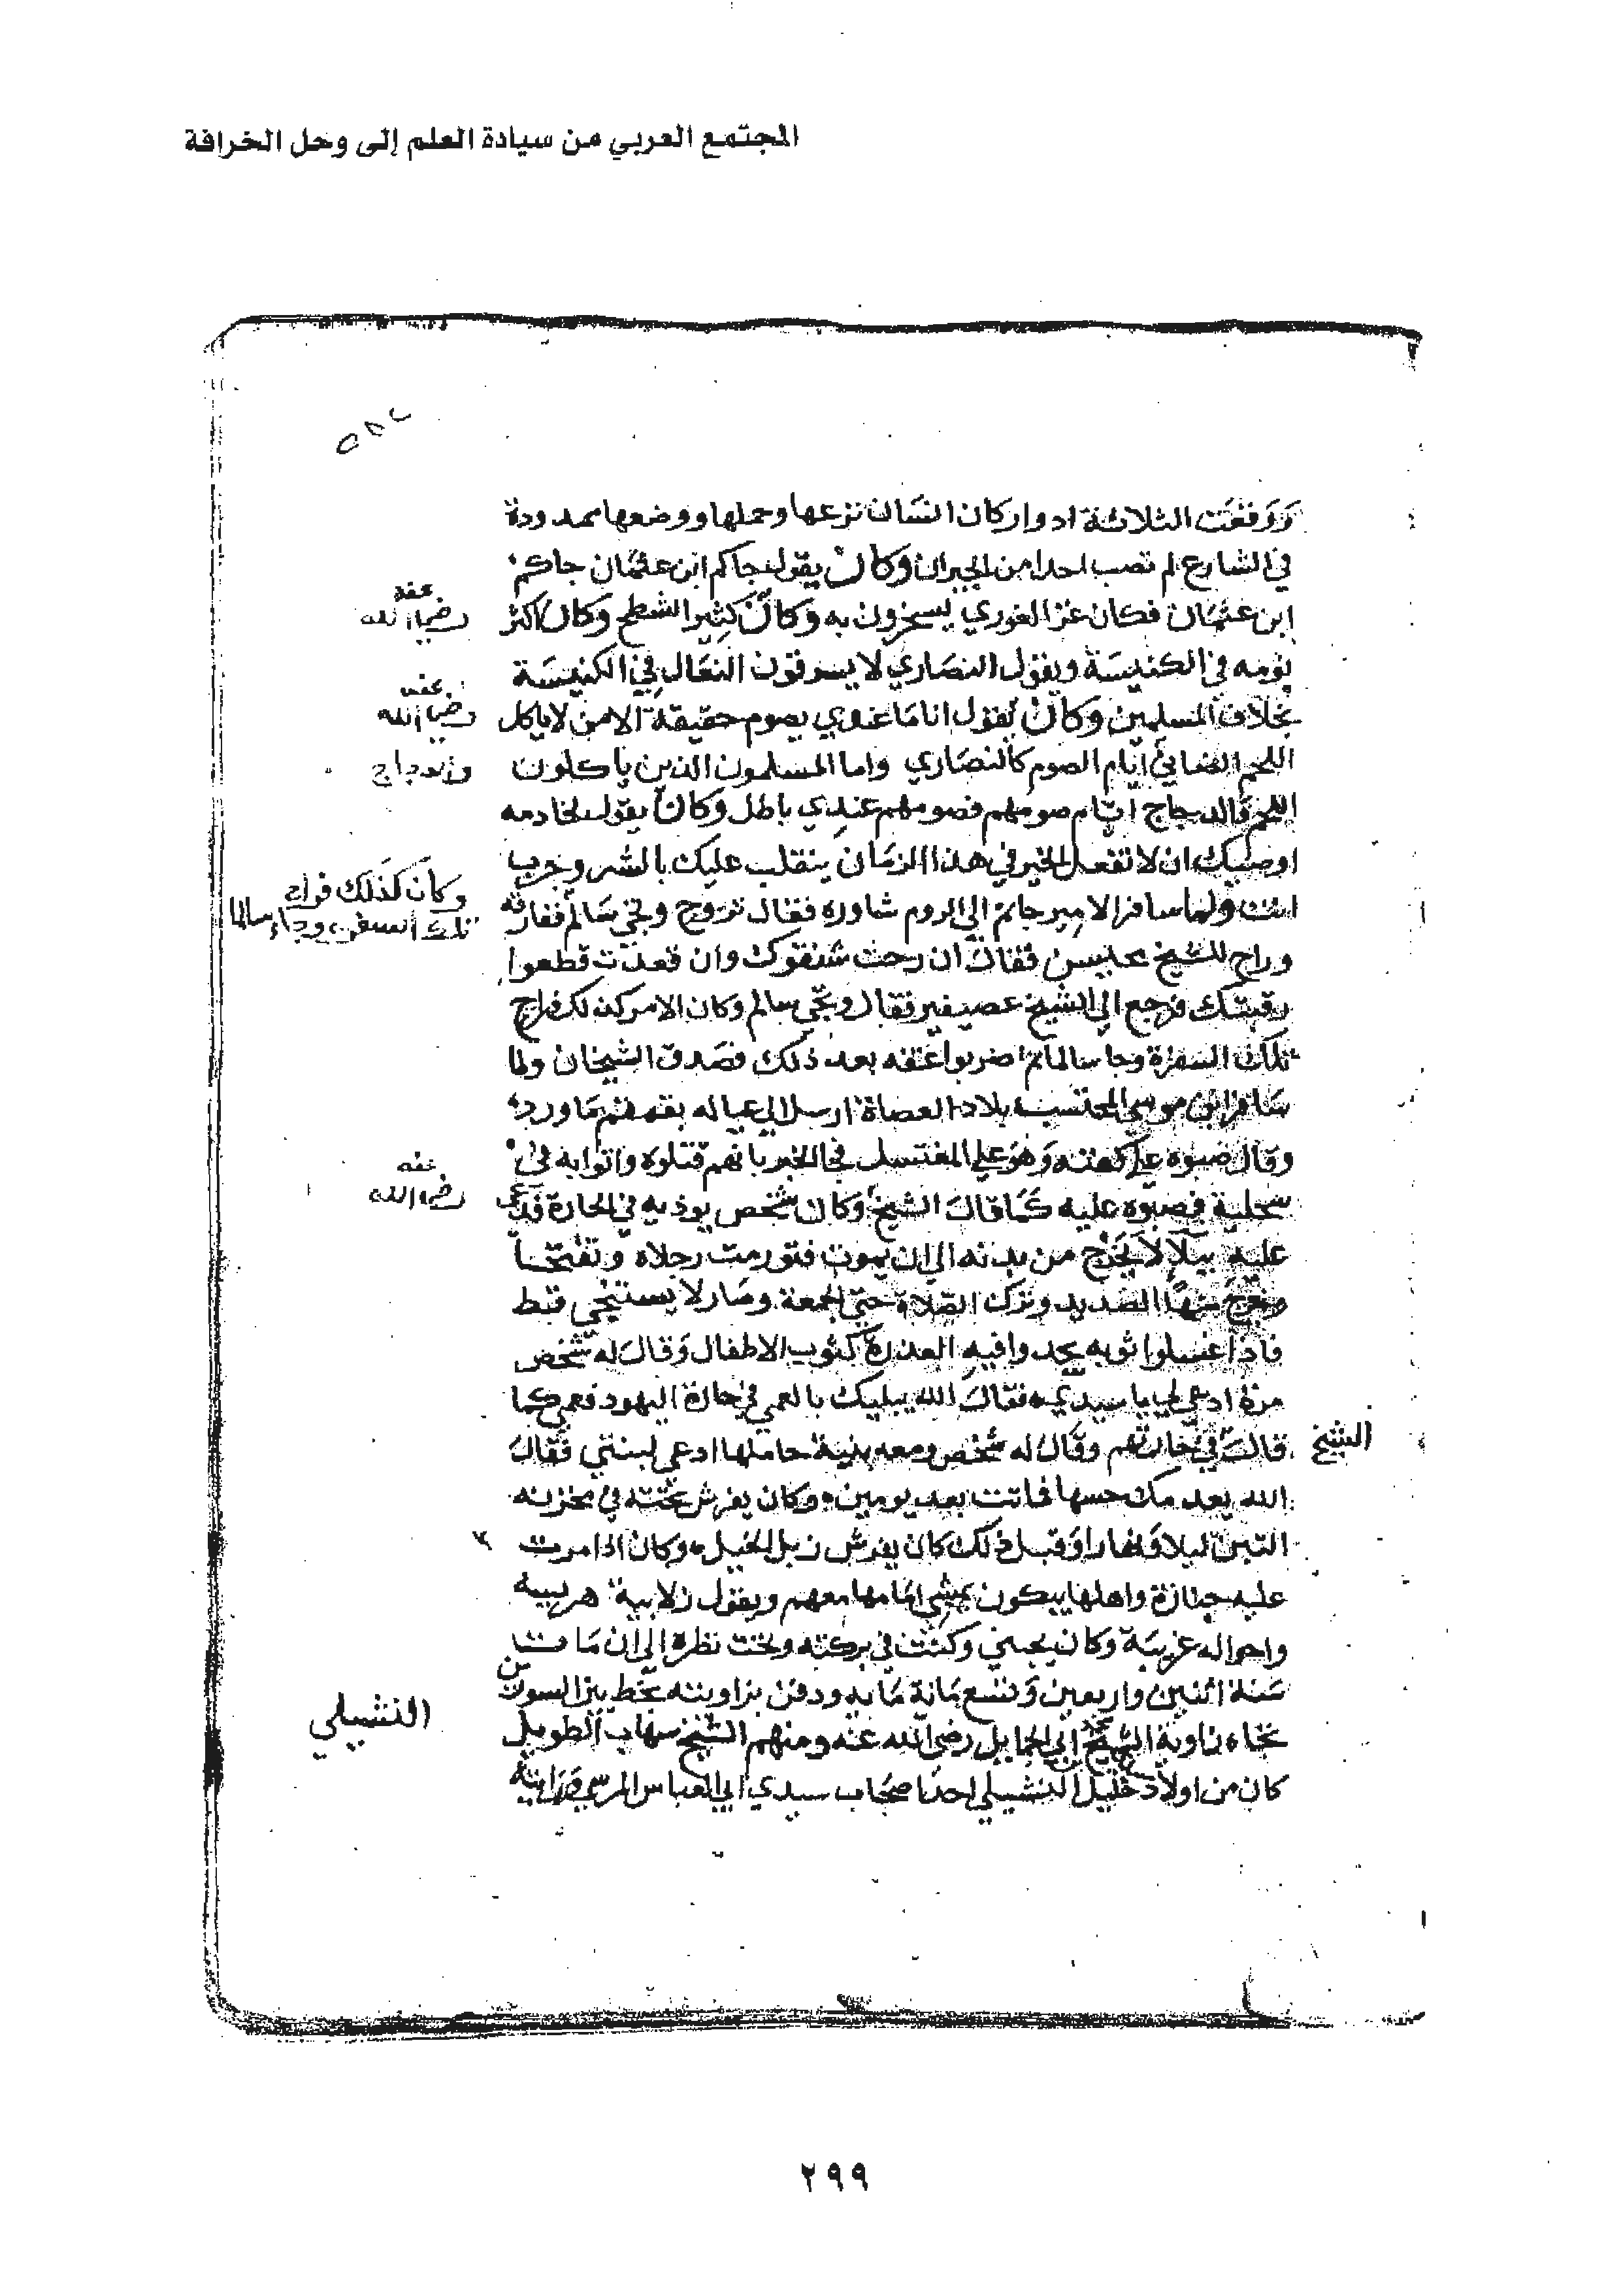 المجتمع العربي من سيادة العلم إلى وحل الخرافة
ووقعت الثلاثة ادوار كان انسان نزعها وحملها ووضعها ممدودة
في الشارع لم تصب احدا من الجيران وكان يقول جاكم ابن عثمان جاكم
ابن عثمان فكان غز الغوري يسخرون به وكان كثير الشطح وكان اكثر
عنه
رضي الله
نومه في الكنيسة ويقول النصاري لا يسرقون النعال في الكنيسة
بخلاف المسلمين وكان يقول انا ما عندي يصوم حقيقة الا من لا ياكل
عنه
رضي الله
اللحم الضاني ايام الصوم كالنصاري واما المسلمون الذين ياكلون
والدجاج
اللحم والدجاج ايام صومهم فصومهم عندي باطل وكان يقول لخادمه
اوصيك ان لا تفعل الخير في هذا الزمان ينقلب عليك بالشر وجرب
انت ولما سافر الامير جانم الي الروم شاوره فقال تروح وتجي سالم ففارقه
وكان كذلك فراح
تلك السفرة وجاء سالما
وراح للشيخ محيسن فقال ان رحت شنقوك وان قعدت قطعوا
رقبتك فرجع الي الشيخ عصيفير فقال وتجي سالم وكان الامر كذلك فراح
تلك السفرة وجا سالما ثم اضربوا عنقه بعد ذلك فصدق الشيخان ولما
سافر ابن موسي المحتسب بلاد العصاة ارسل الي عياله بقمقم ماورد
وقال صبوه علي كفنه وهو علي المغتسل فجا الخبر بانهم قتلوه واتوا به في
سحلية فصبوه عليه كما قال الشيخ وكان شخص يوذيه في الحارة فدعي
عنه
رضي الله
عليه ببلا لا يخرج من بدنه الي ان يموت فتورمت رجلاه وتفتحا
وخرج منهما الصديد وترك الصلاة حتي الجمعة وصار لا يستنجي قط
فاذا غسلوا ثوبه يجدوا فيه العذرة كثوب الاطفال وقال له شخص
مرة ادعي لي يا سيدي فقال الله يبليك بالعمي في حارة اليهود فعمي كما
قال في حارتهم وقال له شخص ومعه بنية حاملها ادعي لبنتي فقال
الشيخ
الله يعدمك حسها فماتت بعد يومين وكان يفرش تحته في مخزنه
التبن ليلا ونهارا وقبل ذلك كان يفرش زبل الخيل وكان اذا مرت
عليه جنازة واهلها يبكون يمشي امامها معهم ويقول زلابية هريسة
واحواله غريبة وكان يحبني وكنت في بركته وتحت نظره الي ان مات
سنة اثنين واربعين وتسعماية ودفن بزاويته بخط بين السورين
تجاه زاوية الشيخ ابي الحمايل رضي الله عنه ومنهم الشيخ شهاب الطويل
النشيلي
كان من اولاد خليل النشيلي احد اصحاب سيدي ابي العباس المرسي
٢٩٩